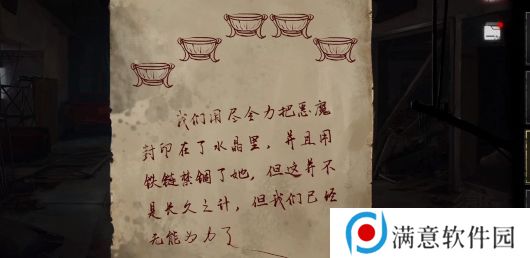 我们用尽全力把恶魔
封印在了水晶里，并且用
铁链禁锢了她，但这并不
是长久之计，但我们已经
无能为力了
满意软件园